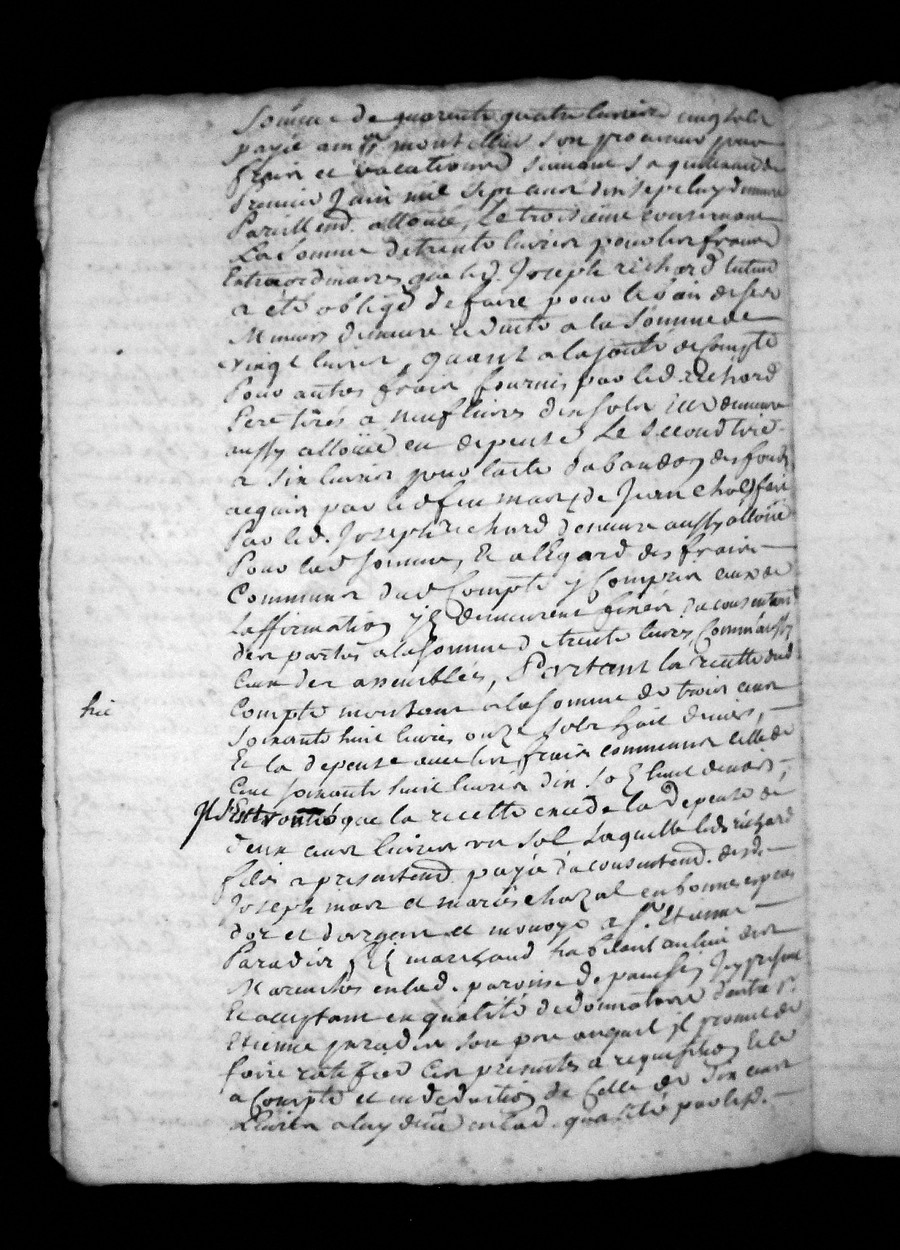 Somme de quarente quatre livres cinq sols
payée au Sr montellier son procureur pour
frais et vacations suivant sa quittance du
Premier Juin mil sept cent dix sept luy demeure
Pareillemt. alloüée, Le troisieme concernant
La somme de trente livres pour les fraix
Extraordinaires que led. Joseph richard tuteur
a été obligé de faire pour le bien de ses
Mineurs demeure reduite a la somme de
vingt livres, quant a la joute de Compte
Pour autres fraix fournis par led. richard
Pere tirés a neuf livres dix sols elle demeure
aussy alloüée en depense Le second tiré
a six livres pour lacte dabandon des fonds
acquis par led feu marc de Jean Chazal fait
Par led. Joseph richard demeure aussy alloüé
Pour lad somme, Et a lEgard des fraix
Communs dud Compte y Compris ceux de
Laffirmation ils demeurent fixés du consentemt
des parties a la somme de trente livres Comm' aussy
Ceux des assemblées, Partant la recette dud
Compte montant a la somme de trois cent
hic
soixante huit livres onze sols huit deniers,
Et la depense avec les fraix communs celle de
Cent soixante huit livres dix sols huit deniers,
Il s'Est trouvé que la recette excede la depense de
deux cent livres un sol Laquelle led richard
fils a presentemt. payée du consentemt. desd.
Joseph marc et marie chazal en bonnes especes
dor et dargent et monoye a Sr. Etienne
Paradis fils marchand habitant au lieu des
Mazeaux en lad. paroisse de Icy present
Et acceptant en qualité de donnataire dautre Sr.
Etienne paradis son pere auquel il promet de
faire ratifier Ces presentes a requisition Et le
a Compte et en deduction de Celle de dix cent
Livres a luy düe en lad. qualité par lesd.